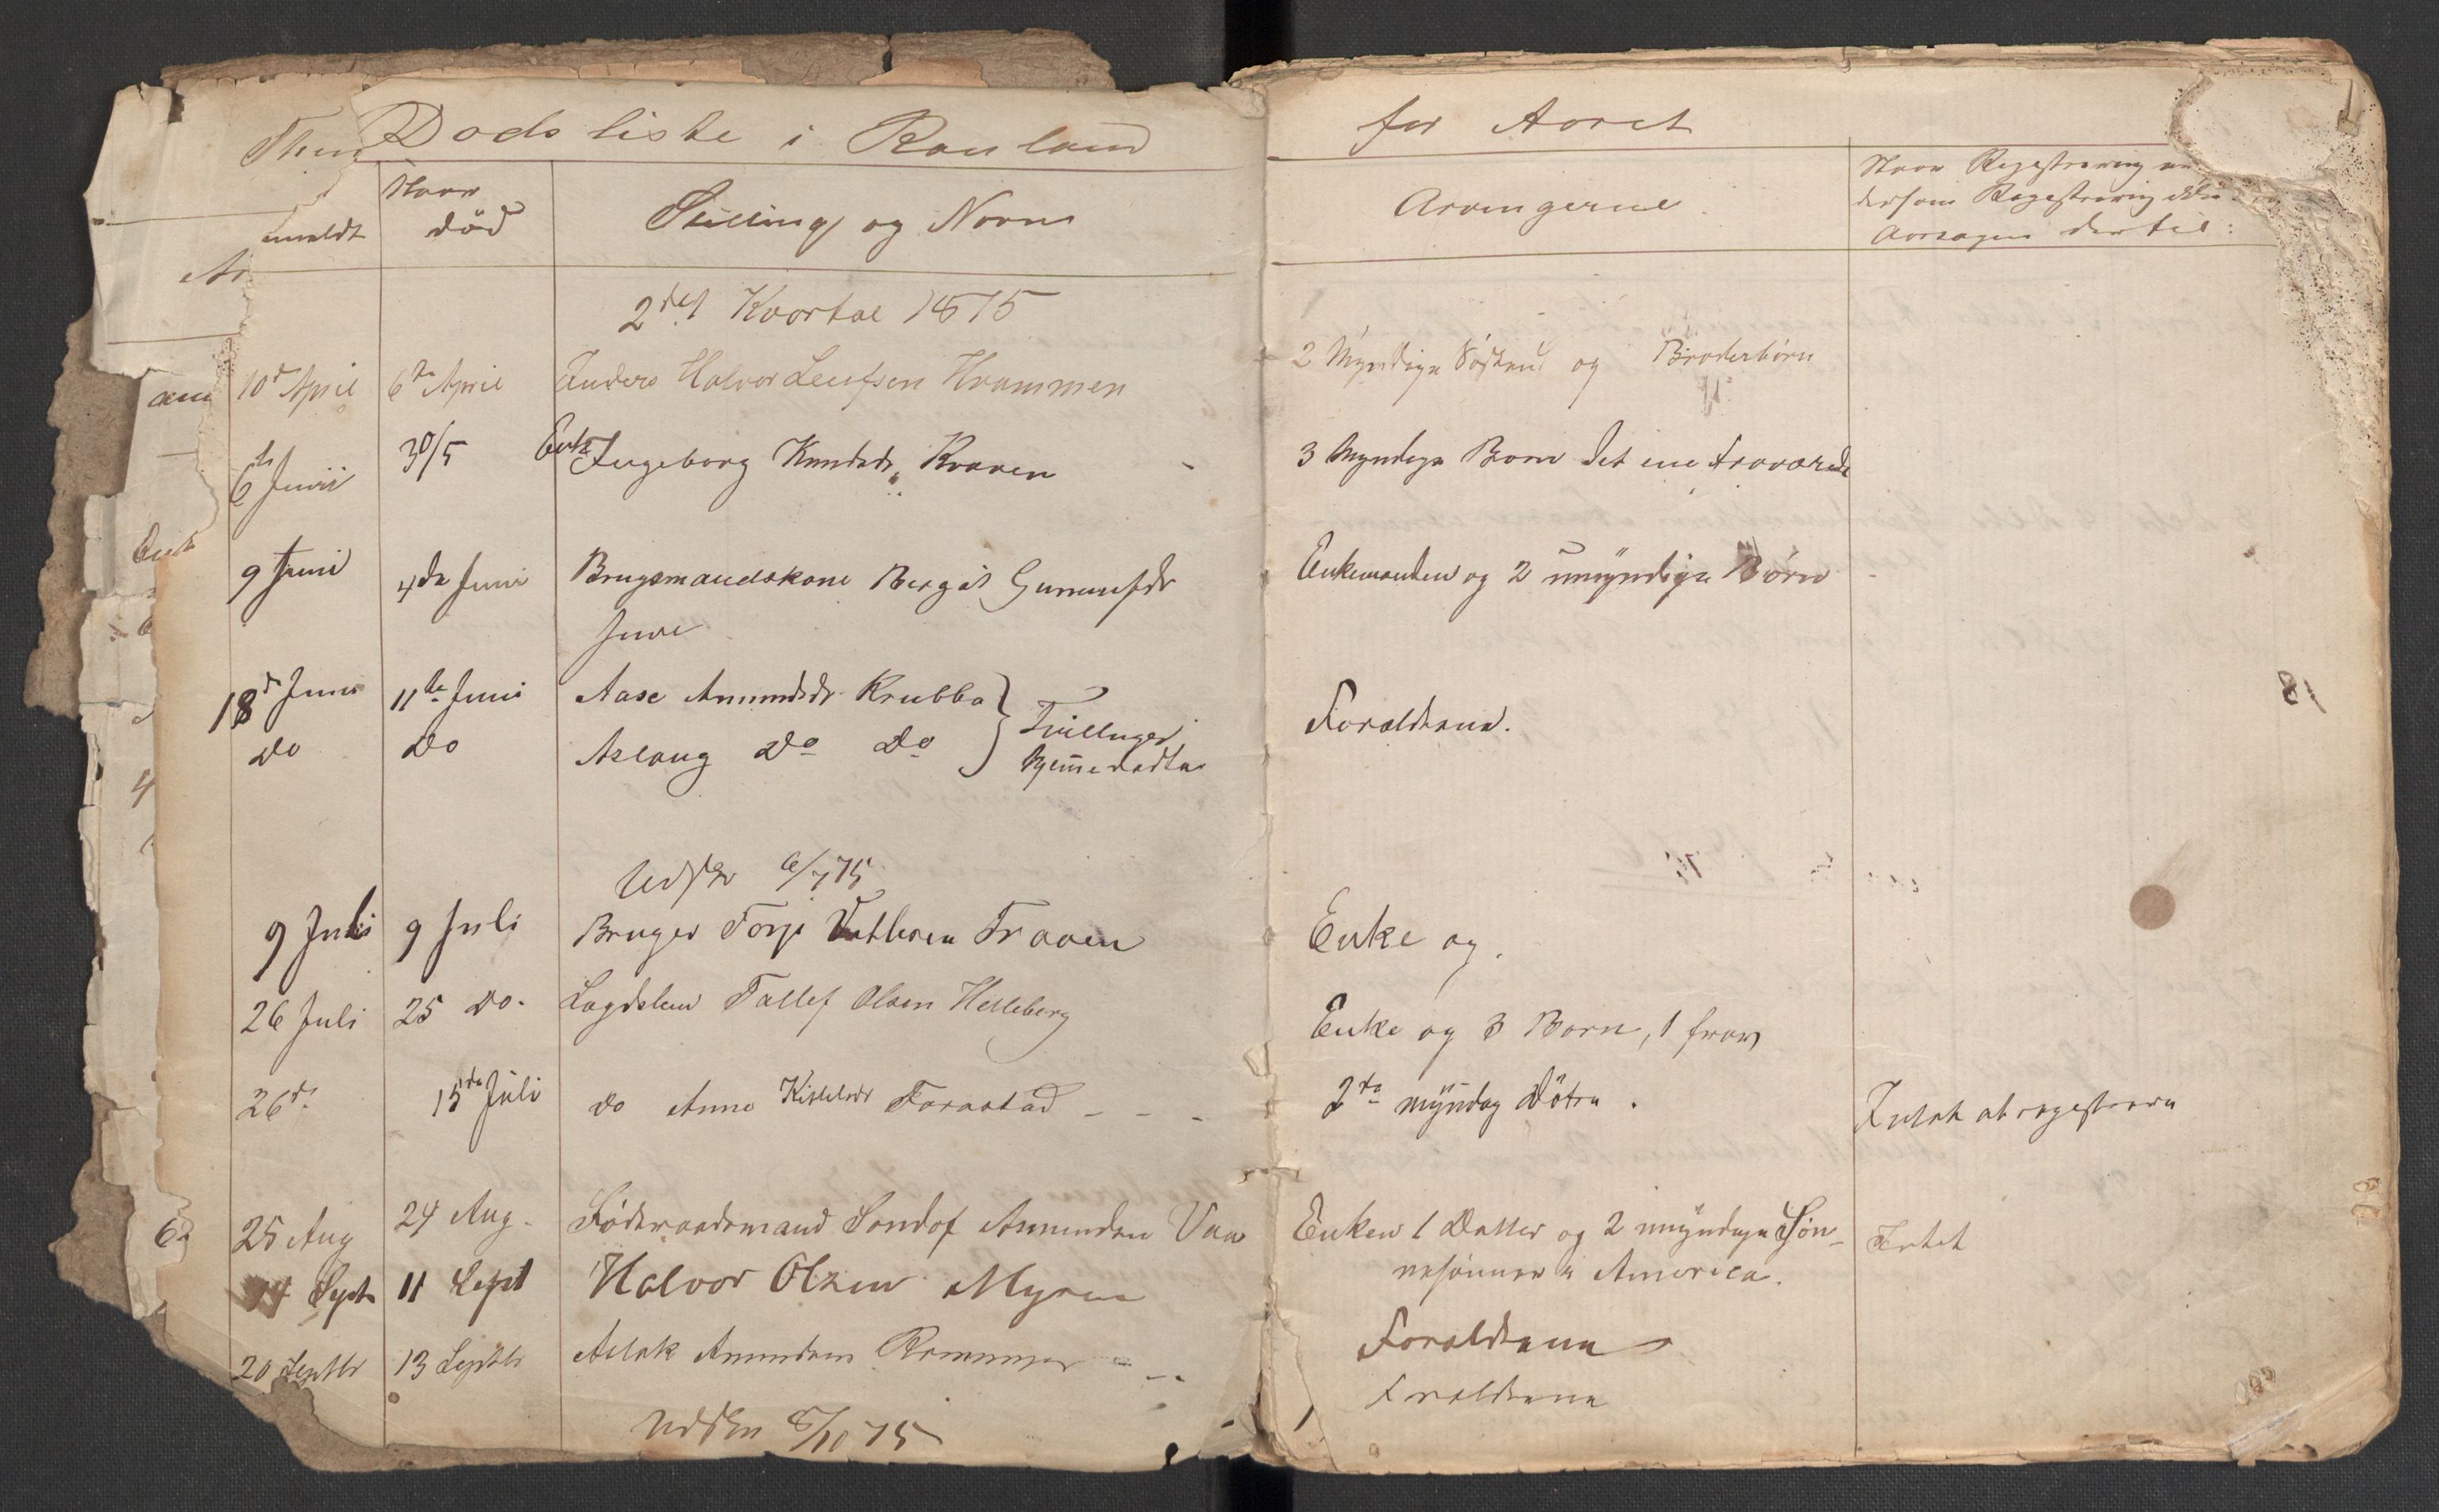 Dods liste i Rauland for Aoret
anmeldt
Naar
död
Stilling og Navn
Arvingerne
Naar Regestrering
dersom Regestrering ikke
Aarsagen dertil:
2det Kvartal 1875
10d April 6te April Anders Halvor Leufsen Hrammen 2 Myndige Søskend og Broderbörn
6te Junii 30/5 Enke Ingeborg Knudsdr. Kraaen 3 Myndige Born det ene fraværende
9 Juni 4de Juni Brugsmandskone Bergit Gunnufsdr Enkemanden og 2 umyndige Börn
Juve
18d Juni 11te Juni Aase Amundsdr Krubba Foraldrene.
Do Do Aslaug Do Do } Tvillinger
hjemmedødte
Udskr 6/7 75
9 Juli 9 Juli Bruger Torje Traaen Enke og
26 Juli 25 Do. Lægdslem Tallef Olsen Helleberg Enke og 3 Born, 1 frav
26d. 15de Juli Do Anne Kittelsdr Farastad - - - 2de myndog Dötre. Intet at regestrere
25 Aug 24 Aug. Föderaadsmand Sondof Amundsen Vaa Enken 1 Datter og 2 umyndige Søn- Intet
nesönner i America.
14 Sept 11 Sept Halvor Olsen Myren Foraldrene
20 Septbr 13 Septbr Aslak Amundsen Foraldrene
Udskr 5/10 75